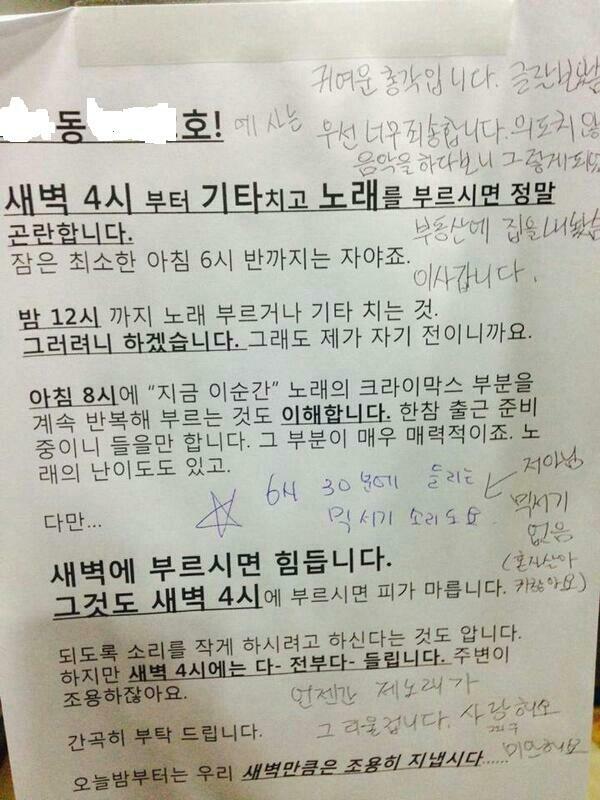 귀여운 총각입니다. 글 잘 보았습
동 호! 에 사는 우선 너무 죄송합니다. 의도치 않
음악을 하다보니 그렇게 되었
새벽 4시 부터 기타치고 노래를 부르시면 정말
곤란합니다.
부동산에 집을 내놨습
잠은 최소한 아침 6시 반까지는 자야죠.
이사갑니다.
밤 12시 까지 노래 부르거나 기타 치는 것.
그러려니 하겠습니다. 그래도 제가 자기 전이니까요.
아침 8시에 "지금 이순간" 노래의 크라이막스 부분을
계속 반복해 부르는 것도 이해합니다. 한참 출근 준비
중이니 들을만 합니다. 그 부분이 매우 매력적이죠. 노
래의 난이도도 있고.
☆ 6시 30분에 들리는
믹서기 소리도요.
저아님
믹서기
없음
(혼자살아
귀찮아요)
다만...
새벽에 부르시면 힘듭니다.
그것도 새벽 4시에 부르시면 피가 마릅니다.
되도록 소리를 작게 하시려고 하신다는 것도 압니다.
하지만 새벽 4시에는 다- 전부다- 들립니다. 주변이
조용하잖아요.
언젠간 제노래가
그리울겁니다. 사랑해요
미안해요
간곡히 부탁 드립니다.
오늘밤부터는 우리 새벽만큼은 조용히 지냅시다......